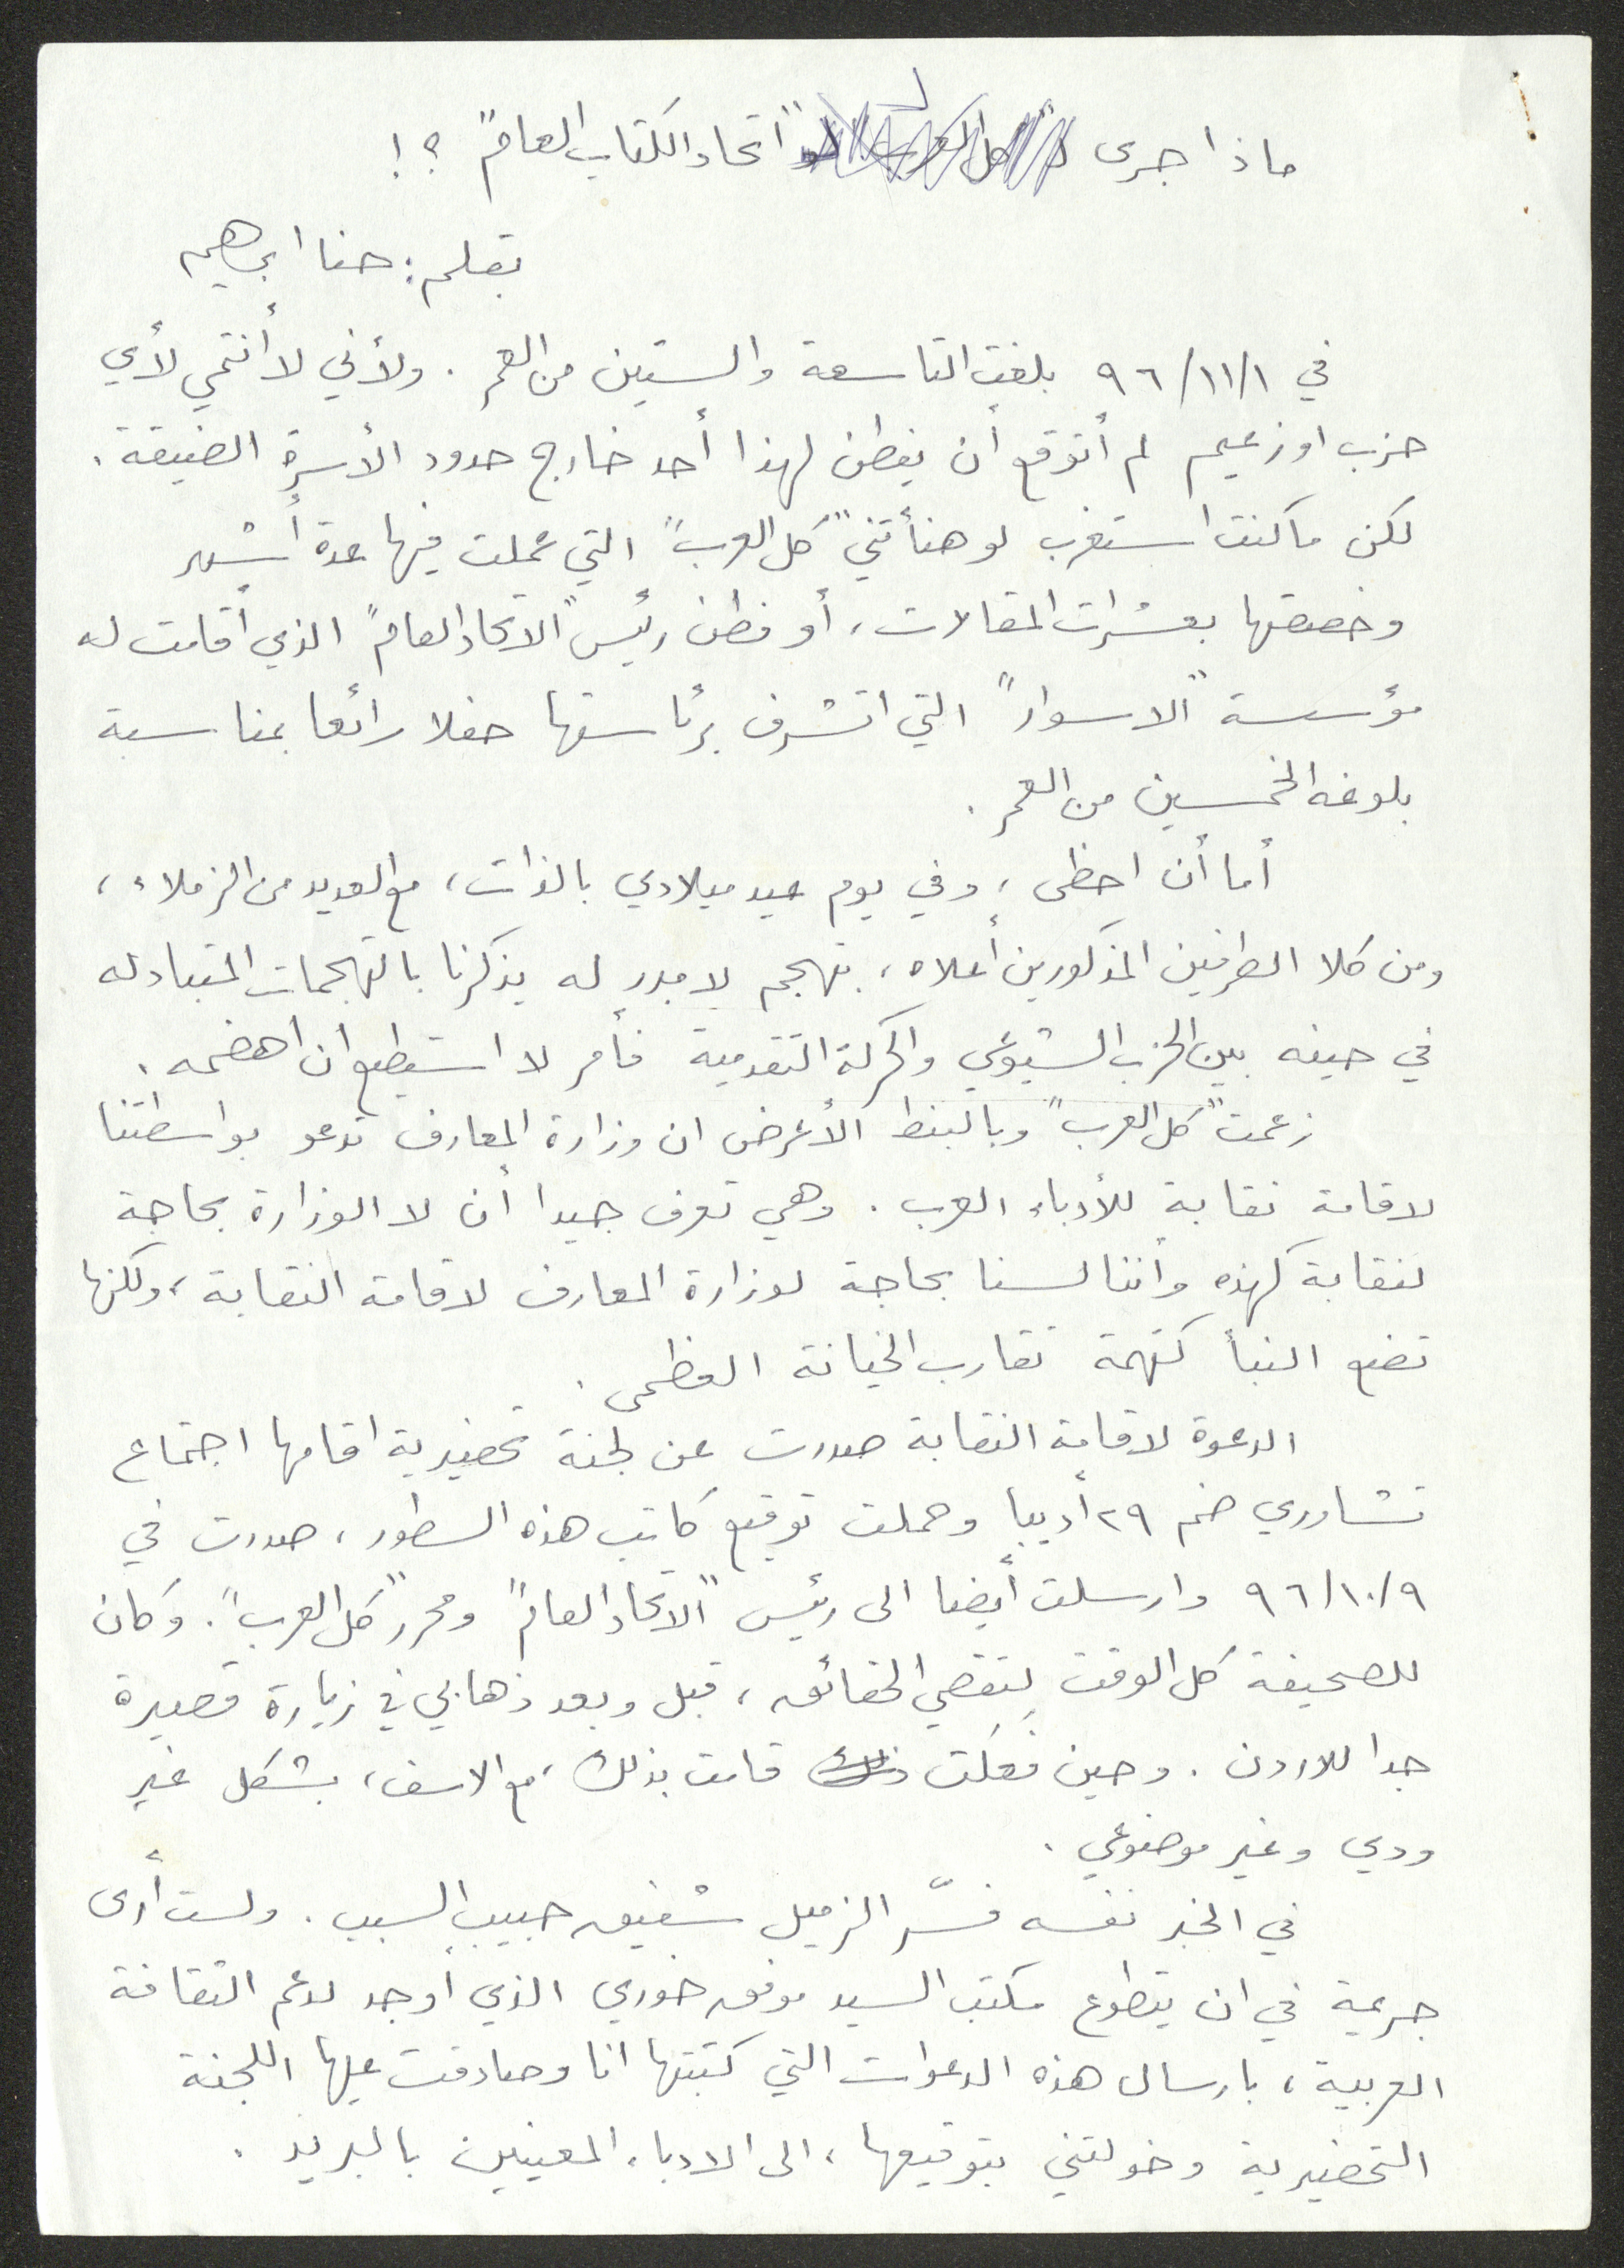 ماذا جرى ل"اتحاد الكتاب العام" ؟!
بقلم: حنا ابراهيم
في ٩٦/١١/١ بلغت التاسعة والستين من العمر . ولأني لا أنتمي لأي
حزب او زعيم لم أتوقع أن يفطن لهذا أحد خارج حدود الأسرة الضيقة .
لكن ما كنت استغرب لو هنأتني "كل العرب" التي عملت فيها عدة أشهر
وخصصتها بعشرات المقالات ، أو فطن رئيس "الاتحاد العام" الذي أقامت له
مؤسسة "الاسوار" التي اتشرف برئاستها حفلا رائعا بمناسبة
بلوغه الخمسين من العمر .
أما أن احظى ، وفي يوم عيد ميلادي بالذات ، مع العديد من الزملاء ،
ومن كلا الطرفين المذكورين أعلاه ، بتهجم لا مبرر له يذكرنا بالتهجمات المتبادله
في حينه بين الحزب الشيوعي والحركة التقدمية فأمر لا استطيع ان اهضمه .
زعمت "كل العرب" وبالبنط الأعرض ان وزارة المعارف تدعو بواسطتنا
لاقامة نقابة للأدباء العرب . وهي تعرف جيدا أن لا الوزارة بحاجة
لنقابة كهذه وأننا لسنا بحاجة لوزارة المعارف لاقامة النقابة ، ولكنها
تضع النبأ كتهمة تقارب الخيانة العظمى .
الدعوة لاقامة النقابة صدرت عن لجنة تحضيرية اقامها اجتماع
تشاوري ضم ٢٩ أديبا وحملت توقيع كاتب هذه السطور ، صدرت في
٩٦/١٠/٩ وارسلت أيضا الى رئيس "الاتحاد العام" ومحرر "كل العرب" . وكان
للصحيفة كل الوقت لتقصي الحقائق ، قبل وبعد ذهابي في زيارة قصيرة
جدا للاردن . وحين فعلت ذلك قامت بذلك ، مع الاسف ، بشكل غير
ودي وغير موضوعي .
في الخبر نفسه فسّر الزميل شفيق حبيب السبب . ولست أرى
جريمة في ان يتطوع مكتب السيد موفق خوري الذي أوجد لدعم الثقافة
العربية ، بارسال هذه الدعوات التي كتبتها انا وصادقت عليها اللجنة
التحضيرية وخولتني بتوقيعها ، الى الادباء المعينين بالبريد .